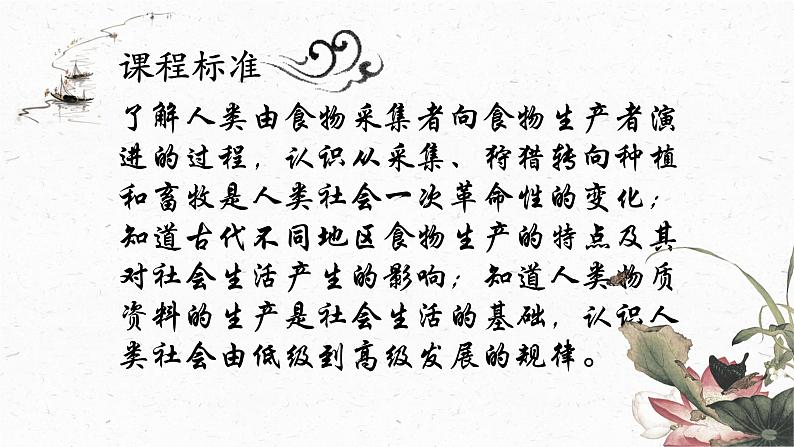 课程标准
了解人类由食物采集者向食物生产者演
进的过程，认识从采集、狩猎转向种植
和畜牧是人类社会一次革命性的变化；
知道古代不同地区食物生产的特点及其
对社会生活产生的影响；知道人类物质
资料的生产是社会生活的基础，认识人
类社会由低级到高级发展的规律。